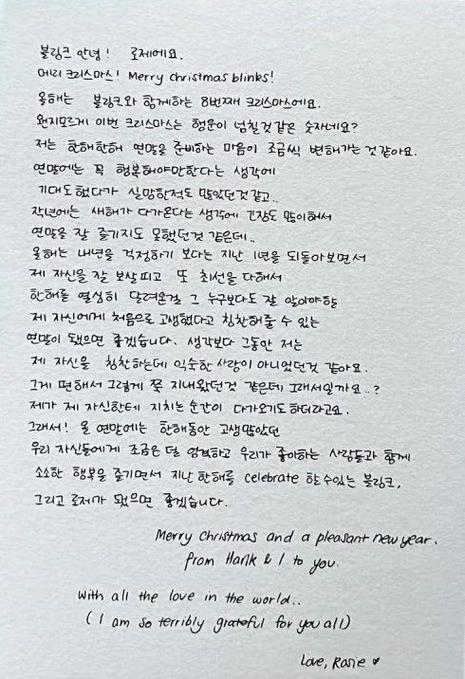 블링크 안녕! 로제에요.
메리 크리스마스! Merry christmas blinks!
올해는 블링크와 함께하는 8번째 크리스마스에요.
왠지모르게 이번 크리스마스는 행운이 넘칠것같은 숫자네요?
저는 한해한해 연말을 준비하는 마음이 조금씩 변해가는것같아요.
연말에는 꼭 행복해야만한다는 생각에
기대도했다가 실망한적도 많았던것같고..
작년에는 새해가 다가온다는 생각에 긴장도 많이해서
연말을 잘 즐기지도 못했던것 같은데..
올해는 내년을 걱정하기 보다는 지난 1년을 되돌아보면서
제 자신을 잘 보살피고 또 최선을 다해서
한해를 열심히 달려온걸 그 누구보다도 잘 알아야할
제 자신에게 처음으로 고생했다고 칭찬해줄 수 있는
연말이 됐으면 좋겠습니다. 생각보다 그동안 저는
제 자신을 칭찬하는데 익숙한 사람이 아니었던것 같아요.
그게 편해서 그렇게 쭉 지내왔던것 같은데 그래서일까요..?
제가 제 자신한테 지치는 순간이 다가오기도 하더라고요.
그래서! 올 연말에는 한해동안 고생많았던
우리 자신들에게 조금은 덜 엄격하고 우리가 좋아하는 사람들과 함께
소소한 행복을 즐기면서 지난 한해를 celebrate 할수있는 블링크,
그리고 로제가 됐으면 좋겠습니다.
Merry Christmas and a pleasant new year.
from Hank & I to you.
with all the love in the world..
(I am so terribly grateful for you all)
Love, Rosie ♥